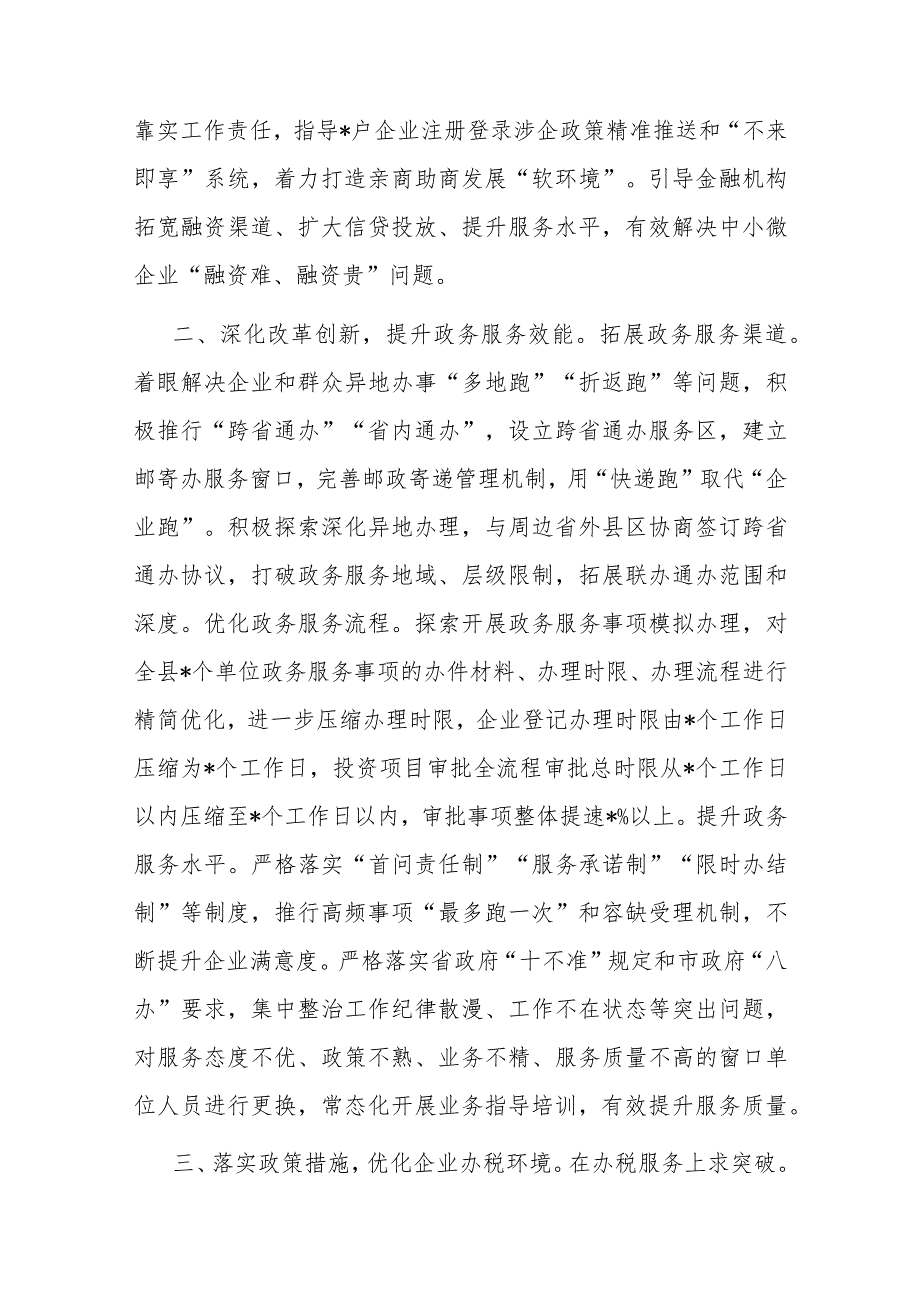 靠实工作责任，指导*户企业注册登录涉企政策精准推送和“不来
即享”系统，着力打造亲商助商发展“软环境”。引导金融机构
拓宽融资渠道、扩大信贷投放、提升服务水平，有效解决中小微
企业“融资难、融资贵”问题。
二、深化改革创新，提升政务服务效能。拓展政务服务渠道。
着眼解决企业和群众异地办事“多地跑”“折返跑”等问题，积
极推行“跨省通办”“省内通办”，设立跨省通办服务区，建立
邮寄办服务窗口，完善邮政寄递管理机制，用“快递跑”取代“企
业跑”。积极探索深化异地办理，与周边省外县区协商签订跨省
通办协议，打破政务服务地域、层级限制，拓展联办通办范围和
深度。优化政务服务流程。探索开展政务服务事项模拟办理，对
全县*个单位政务服务事项的办件材料、办理时限、办理流程进行
精简优化，进一步压缩办理时限，企业登记办理时限由*个工作日
压缩为*个工作日，投资项目审批全流程审批总时限从*个工作日
以内压缩至*个工作日以内，审批事项整体提速*%以上。提升政务
服务水平。严格落实“首问责任制”“服务承诺制”“限时办结
制”等制度，推行高频事项“最多跑一次”和容缺受理机制，不
断提升企业满意度。严格落实省政府“十不准”规定和市政府“八
办”要求，集中整治工作纪律散漫、工作不在状态等突出问题，
对服务态度不优、政策不熟、业务不精、服务质量不高的窗口单
位人员进行更换，常态化开展业务指导培训，有效提升服务质量。
三、落实政策措施，优化企业办税环境。在办税服务上求突破。